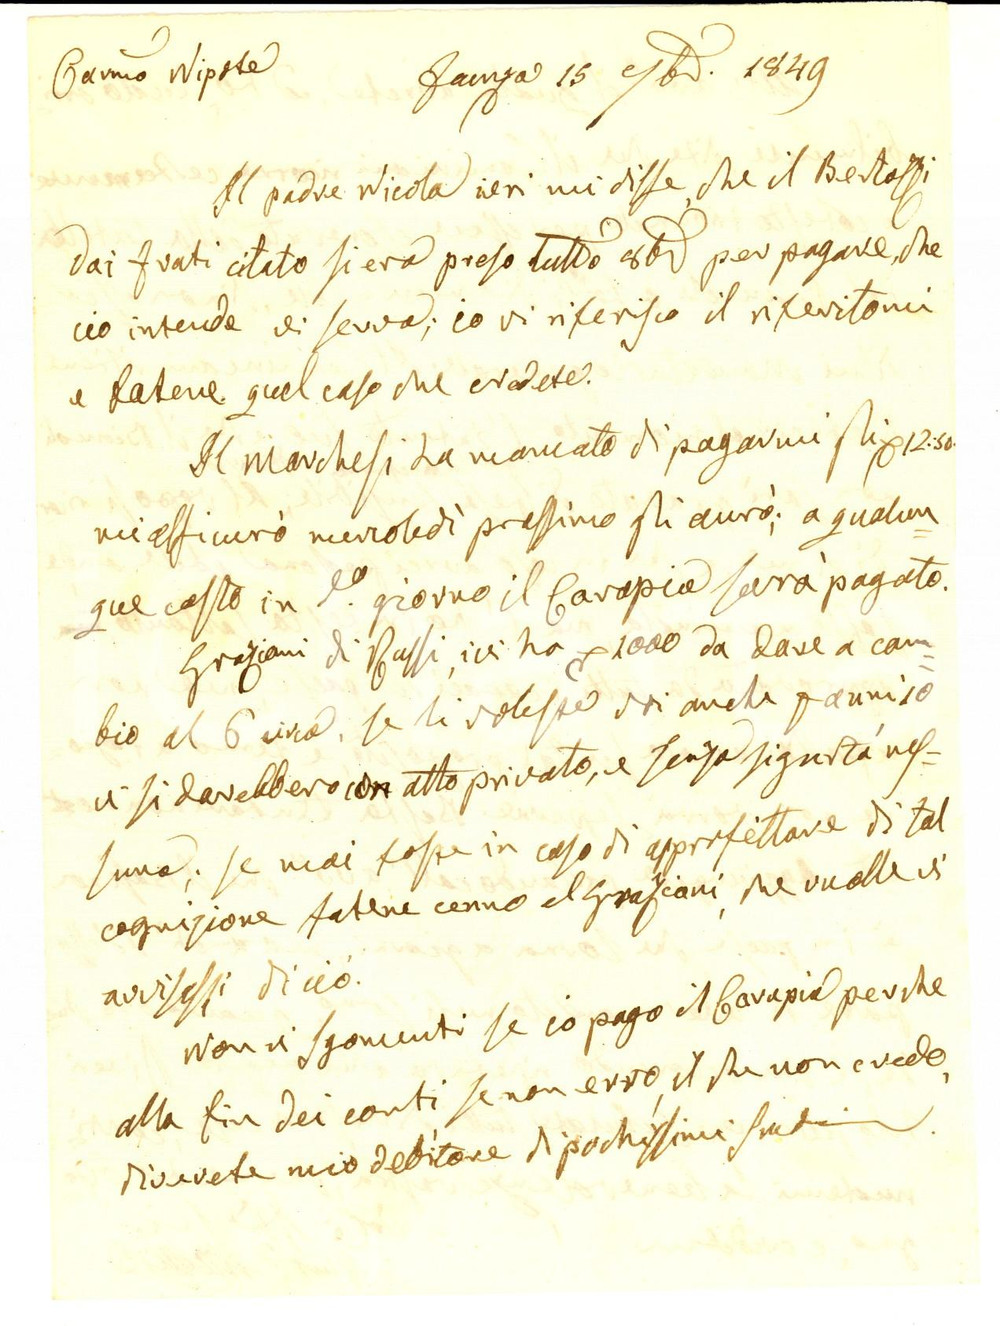 Carmo Nipote Faenza 15 7bre. 1849
Il padre Nicola ieri mi disse, che il Bertozzi
dai frati citato si era preso tutto 8bre per pagare, che
ciò intende vi serva; io vi riferisco il riferitomi
e fatene quel caso che credete.
Il Marchesi ha mancato di pagarmi gli 12:50.
mi assicurò mercoledì prossimo gli avrò; a qualun=
que costo in do. giorno il Carapia sarà pagato.
Graziani di Russi, ivi ha 1000 da dare a cam=
bio al 6 se li voleste voi anche
vi si darebbero con atto privato, e senza sigurtà nes=
suna; se mai foste in caso di approfittare di tal
cognizione fatene cenno al Graziani, che vuolle vi
avvisassi di ciò.
Non vi sgomenti se io pago il Carapia perche
alla fin dei conti, se non erro, il che non credo,
diverete mio debitore di pochissimi scudi.